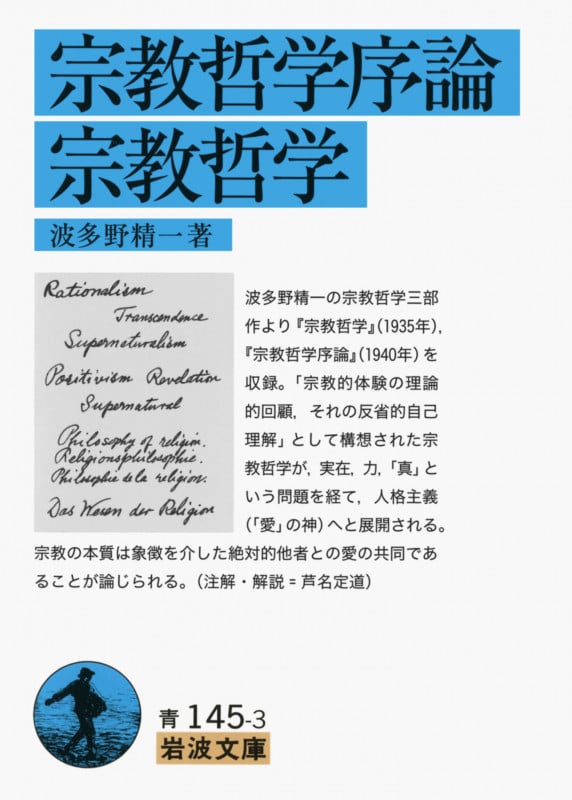 宗教哲学序論
宗教哲学
波多野精一著
Rationalism
Transcendence
Supernaturalism
Positivism Revelation
Supernatural
Philosophy of religion.
Religionsphilosophie.
Philosophie de la religion.
Das Wesen der Religion
波多野精一の宗教哲学三部
作より『宗教哲学』(1935年),
『宗教哲学序論』(1940年)を
収録。「宗教的体験の理論
的回顧, それの反省的自己
理解」として構想された宗
教哲学が, 実在, 力, 「真」と
いう問題を経て, 人格主義
(「愛」の神)へと展開される。
宗教の本質は象徴を介した絶対的他者との愛の共同であ
ることが論じられる。(注解・解説=芦名定道)
青 145-3
岩波文庫